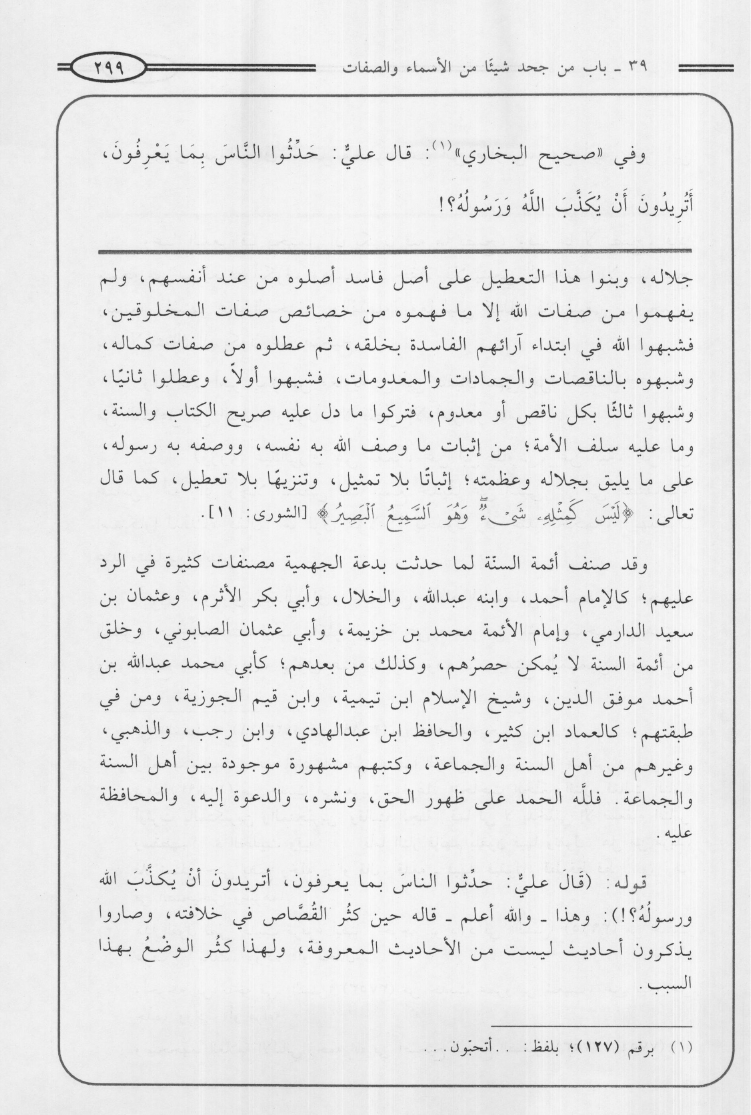 ٣٩ ـ باب من جحد شيئًا من الأسماء والصفات
٢٩٩
وفي «صحيح البخاري»(١): قال عليٌّ: حَدِّثُوا النَّاسَ بِمَا يَعْرِفُونَ،
أَتُرِيدُونَ أَنْ يُكَذَّبَ اللَّهُ وَرَسُولُهُ؟!
جلاله، وبنوا هذا التعطيل على أصل فاسد أصلوه من عند أنفسهم، ولم
يفهموا من صفات الله إلا ما فهموه من خصائص صفات المخلوقين،
فشبهوا الله في ابتداء آرائهم الفاسدة بخلقه، ثم عطلوه من صفات كماله،
وشبهوه بالناقصات والجمادات والمعدومات، فشبهوا أولاً، وعطلوا ثانيًا،
وشبهوا ثالثًا بكل ناقص أو معدوم، فتركوا ما دل عليه صريح الكتاب والسنة،
وما عليه سلف الأمة؛ من إثبات ما وصف الله به نفسه، ووصفه به رسوله،
على ما يليق بجلاله وعظمته؛ إثباتًا بلا تمثيل، وتنزيهًا بلا تعطيل، كما قال
تعالى: ﴿لَيْسَ كَمِثْلِهِۦ شَىْءٌ ۖ وَهُوَ ٱلسَّمِيعُ ٱلْبَصِيرُ﴾ [الشورى: ١١].
وقد صنف أئمة السنّة لما حدثت بدعة الجهمية مصنفات كثيرة في الرد
عليهم؛ كالإمام أحمد، وابنه عبدالله، والخلال، وأبي بكر الأثرم، وعثمان بن
سعيد الدارمي، وإمام الأئمة محمد بن خزيمة، وأبي عثمان الصابوني، وخلق
من أئمة السنة لا يُمكن حصرُهم، وكذلك من بعدهم؛ كأبي محمد عبدالله بن
أحمد موفق الدين، وشيخ الإسلام ابن تيمية، وابن قيم الجوزية، ومن في
طبقتهم؛ كالعماد ابن كثير، والحافظ ابن عبدالهادي، وابن رجب، والذهبي،
وغيرهم من أهل السنة والجماعة، وكتبهم مشهورة موجودة بين أهل السنة
والجماعة. فللَّه الحمد على ظهور الحق، ونشره، والدعوة إليه، والمحافظة
عليه.
قوله: (قَالَ عليٌّ: حدِّثوا الناسَ بما يعرفون، أتريدونَ أنْ يُكذَّبَ الله
ورسولُهُ؟!): وهذا ـ والله أعلم ـ قاله حين كثُر القُصَّاص في خلافته، وصاروا
يذكرون أحاديث ليست من الأحاديث المعروفة، ولهذا كثُر الوضْعُ بهذا
السبب.
(١) برقم (١٢٧)؛ بلفظ: ..أتحبّون...